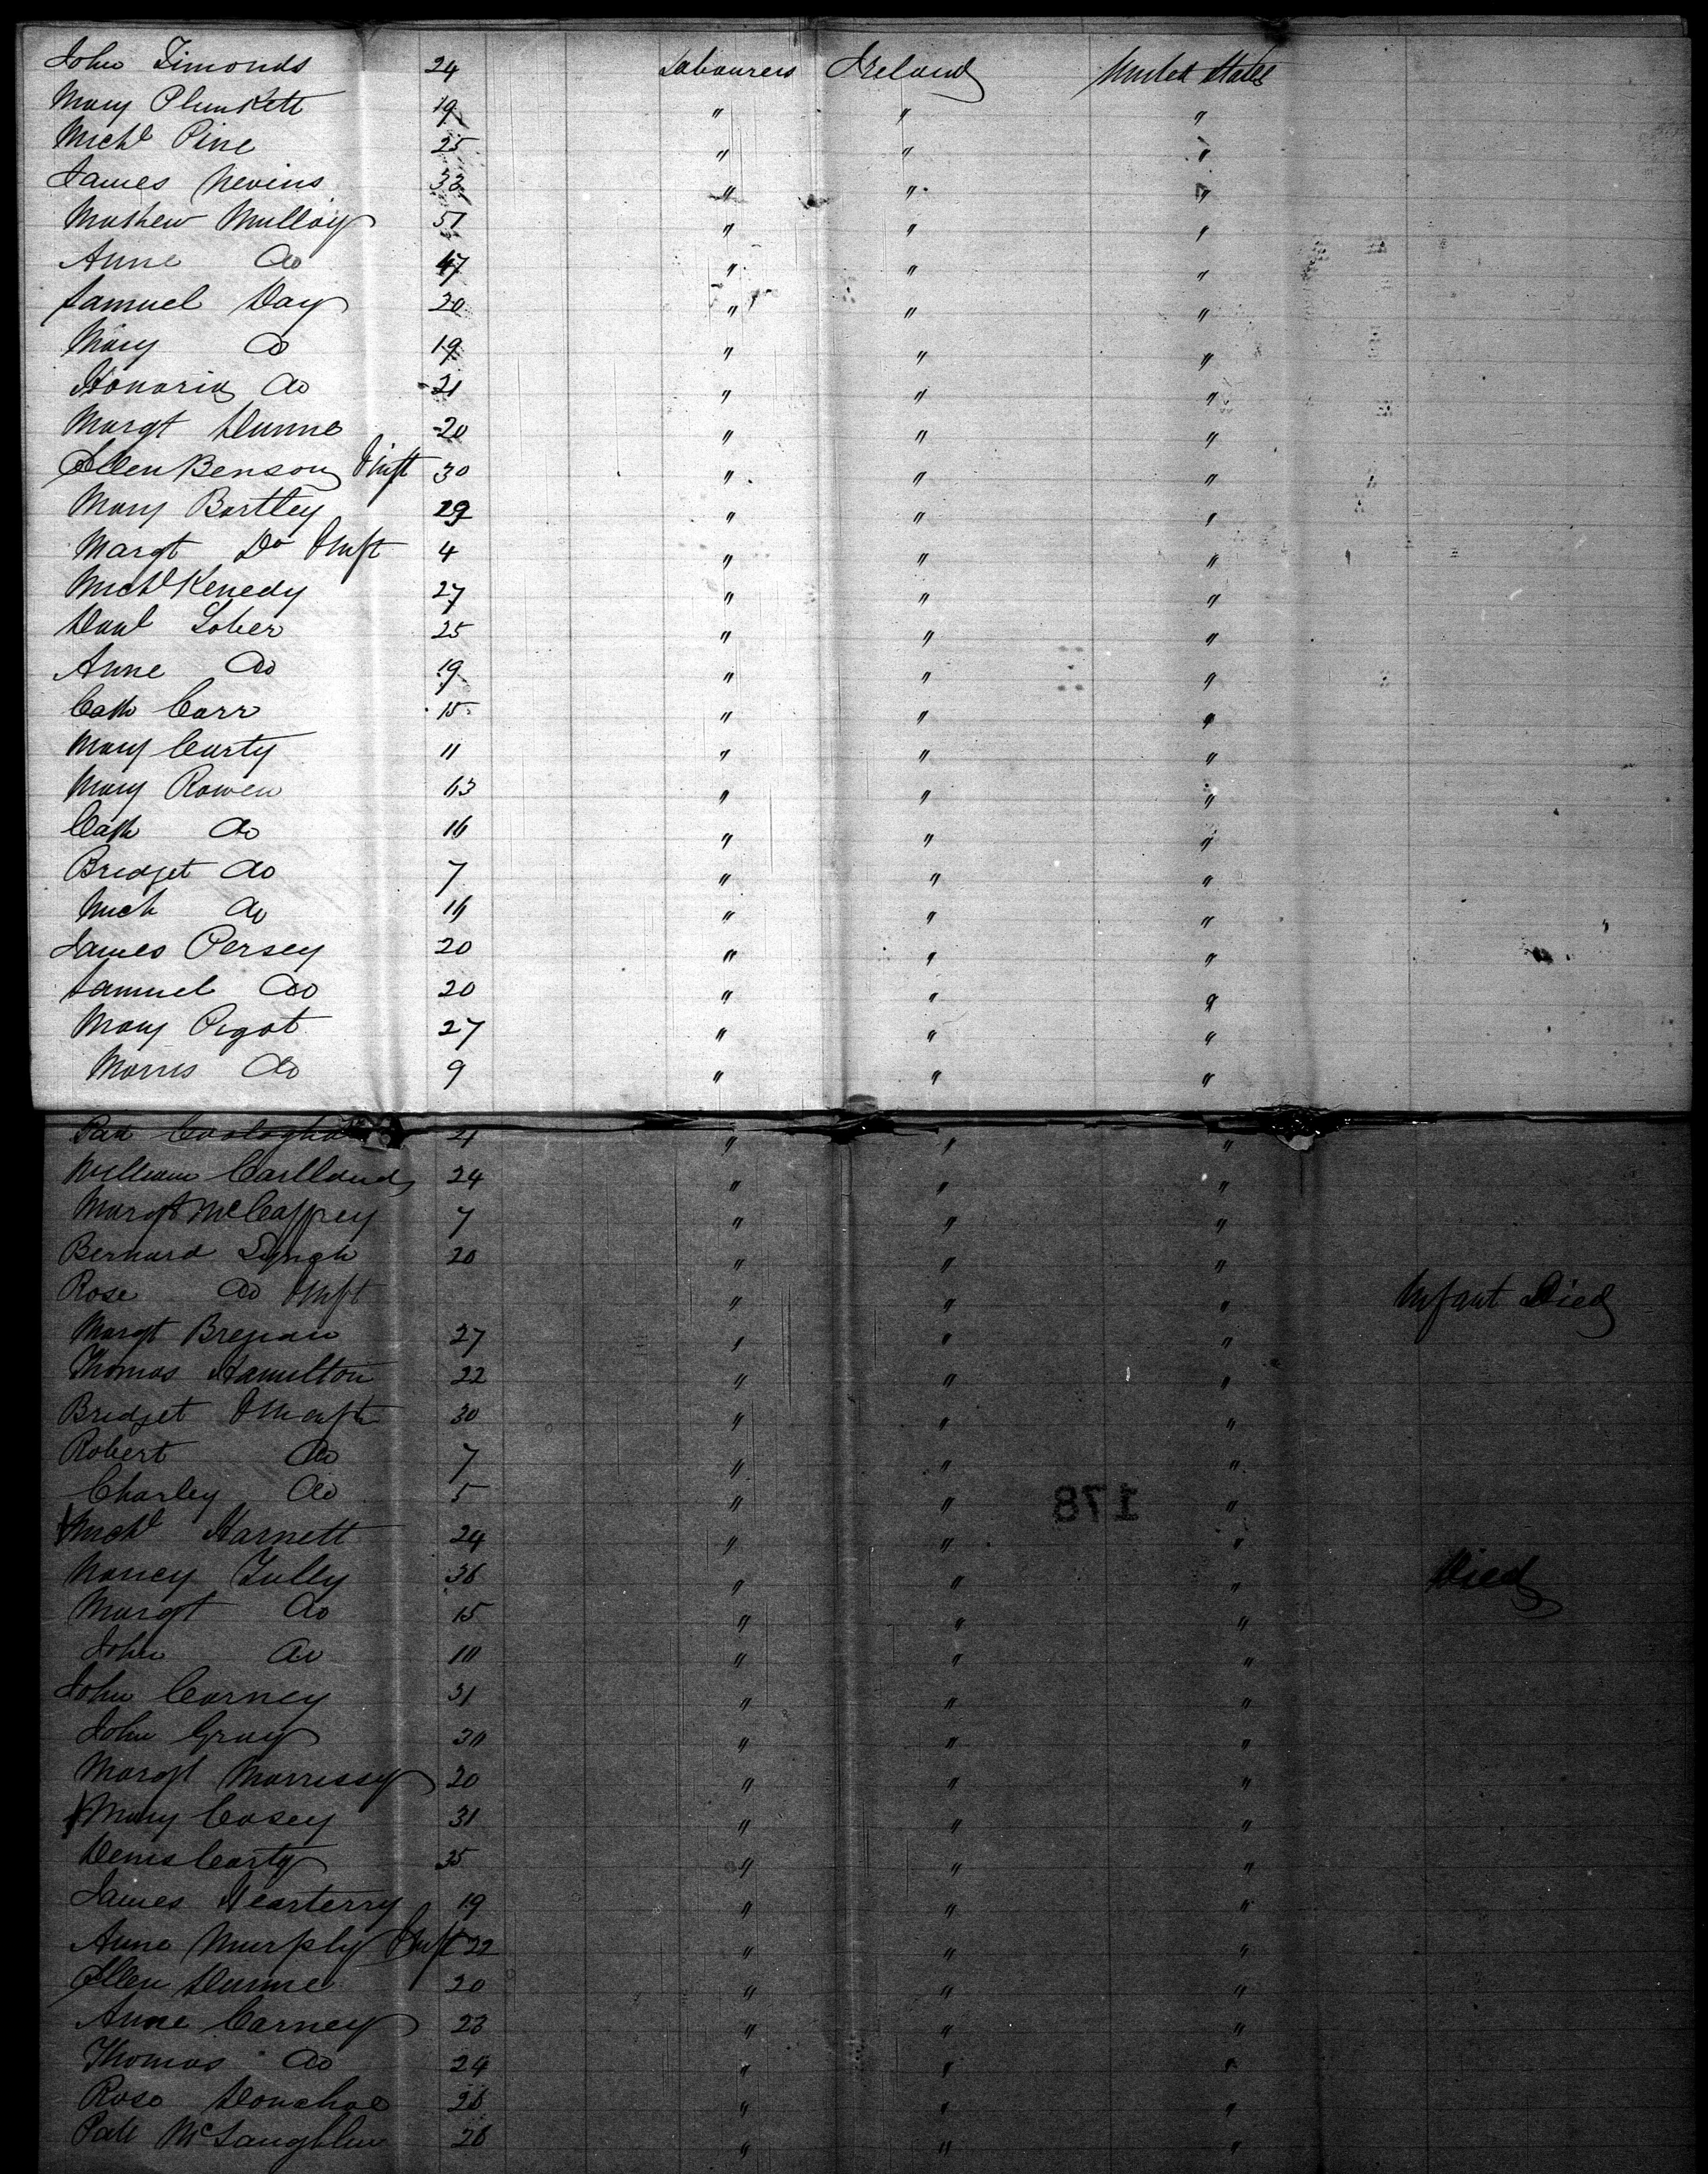 John Timonds 24 Labourers Ireland United States
Mary Plunkett 19 " " "
Michl Pine 25 " " "
James Nevins 33 " " "
Mathew Mulloy 51 " " "
Anne Do 47 " " "
Samuel Day 20 " " "
Mary Do 19 " " "
Honoria Do 21 " " "
Margt Dunne 20 " " "
Ellen Benson & Inft 30 " " "
Mary Bartley 29 " " "
Margt Do & Inft 4 " " "
Michl Kenedy 27 " " "
Danl Sober 25 " " "
Anne Do 19 " " "
Cath Carr 15 " " "
Mary Curty 11 " " "
Mary Rowen 13 " " "
Cath Do 16 " " "
Bridget Do 7 " " "
Mich Do " " "
James Persey 20 " " "
Samuel Do 20 " " "
Mary Pigot 27 " " "
Morris Do 9 " " "
Patt " " "
William Carlland 24 " " "
Margt McCaffrey 7 " " "
Bernard Lynch 20 " " "
Rose Do & Inft " " " Infant Died
Margt 27 " " "
Thomas Hamilton 22 " " "
Bridget 30 " " "
Robert Do 7 " " "
Charley Do 5 " " "
Michl Harnett 24 " " "
Nancy Tully 36 " " " Died
Margt Do 15 " " "
John Do 10 " " "
John Carney 31 " " "
John Gray 30 " " "
Margt Morrissy 20 " " "
Mary Casey 31 " " "
Denis Carty 35 " " "
James 19 " " "
Anne Murphy & Inft 22 " " "
Ellen Dunne 20 " " "
Anne Carney 23 " " "
Thomas Do 24 " " "
Rose Donohoe 26 " " "
Patt McLaughlin 26 " " "
178